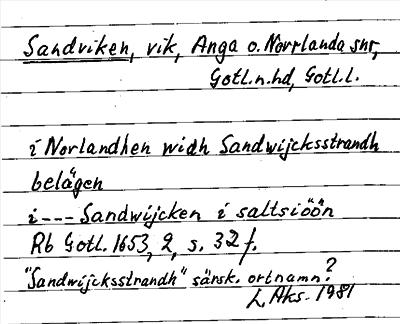 Sandviken, vik, Anga o. Norrlanda snr,
Gotl.n.hd, Gotl.l.
i Norlandhen widh Sandwijcksstrandh
belägen
i --- Sandwijcken i saltsiöön
Rb Gotl. 1653, 2, s. 32 f.
"Sandwijcksstrandh" särsk. ortnamn?
L. Aks. 1981